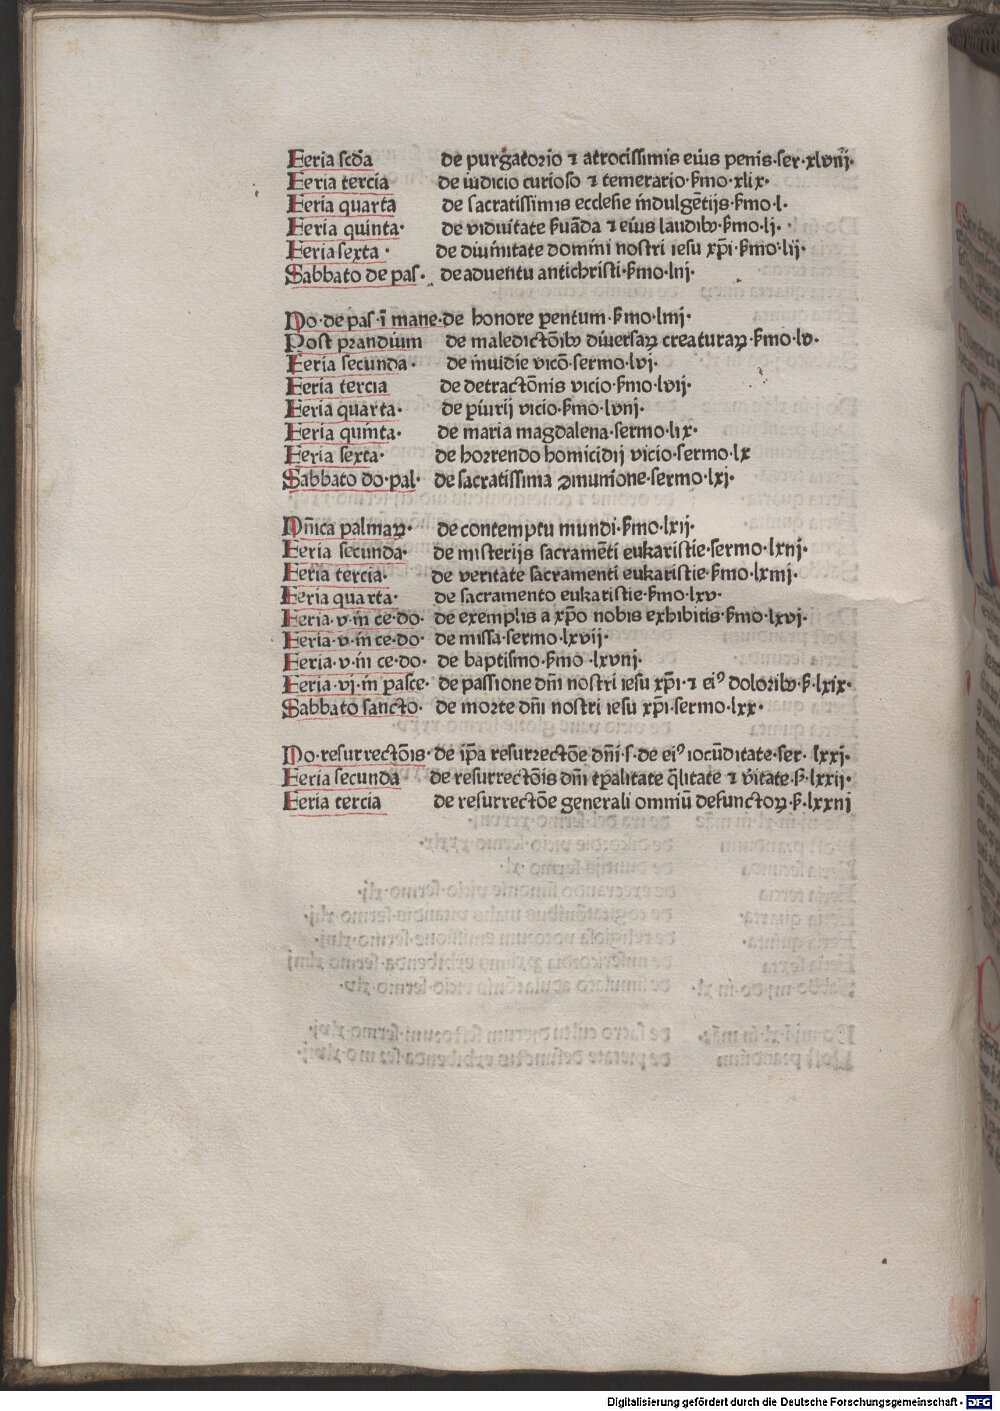 Feria scd̄a de purgatorio ⁊ atrocissimis eius penis·ser·xlviij·
Feria tercia de iudicio curioso ⁊ temerario·ẜmo·xlix·
Feria quarta de sacratissimis ecclesie indulgētijs·ẜmo·l·
Feria quinta· de viduitate ẜuāda ⁊ eius laudibꝰ·ẜmo·lj·
Feria sexta· de diuinitate domini nostri iesu xp̄i·ẜmo·lij·
Sabbato de pas· de aduentu antichristi·ẜmo·liij·
Do·de pas·ī mane·de honore parentum·ẜmo·liiij·
Post prandium de maledictōibꝰ diuersaꝝ creaturaꝝ·ẜmo·lv·
Feria secunda· de inuidie vicō·sermo·lvj·
Feria tercia de detractōnis vicio·ẜmo·lvij·
Feria quarta· de ꝑiurij vicio·ẜmo·lviij·
Feria quinta· de maria magdalena·sermo·lix·
Feria sexta· de horrendo homicidij vicio·sermo·lx
Sabbato do·pal· de sacratissima ꝯmunione·sermo·lxj·
Dn̄ica palmaꝝ· de contemptu mundi·ẜmo·lxij·
Feria secunda· de misterijs sacramēti eukaristie·sermo·lxiij·
Feria tercia· de veritate sacramenti eukaristie·ẜmo·lxiiij·
Feria quarta· de sacramento eukaristie·ẜmo·lxv·
Feria·v·in ce·do· de exemplis a xp̄o nobis exhibitis·ẜmo·lxvj·
Feria·v·in ce·do· de missa·sermo·lxvij·
Feria·v·in ce·do· de baptismo·ẜmo·lxviij·
Feria·vj·in pasce· de passione dn̄i nostri iesu xp̄i·⁊ eiꝰ doloribꝰ·ẜ·lxix·
Sabbato sancto· de morte dn̄i nostri iesu xp̄i·sermo·lxx·
Do·resurrectōis·de ip̄a resurrectōe dn̄i·s·de eiꝰ iocūditate·ser·lxxj·
Feria secunda de resurrectōis dn̄i tp̄alitate q̄litate ⁊ v̄itate·ẜ·lxxij·
Feria tercia de resurrectōe generali omniū defunctoꝝ·ẜ·lxxiij
Digitalisierung gefördert durch die Deutsche Forschungsgemeinschaft - DFG